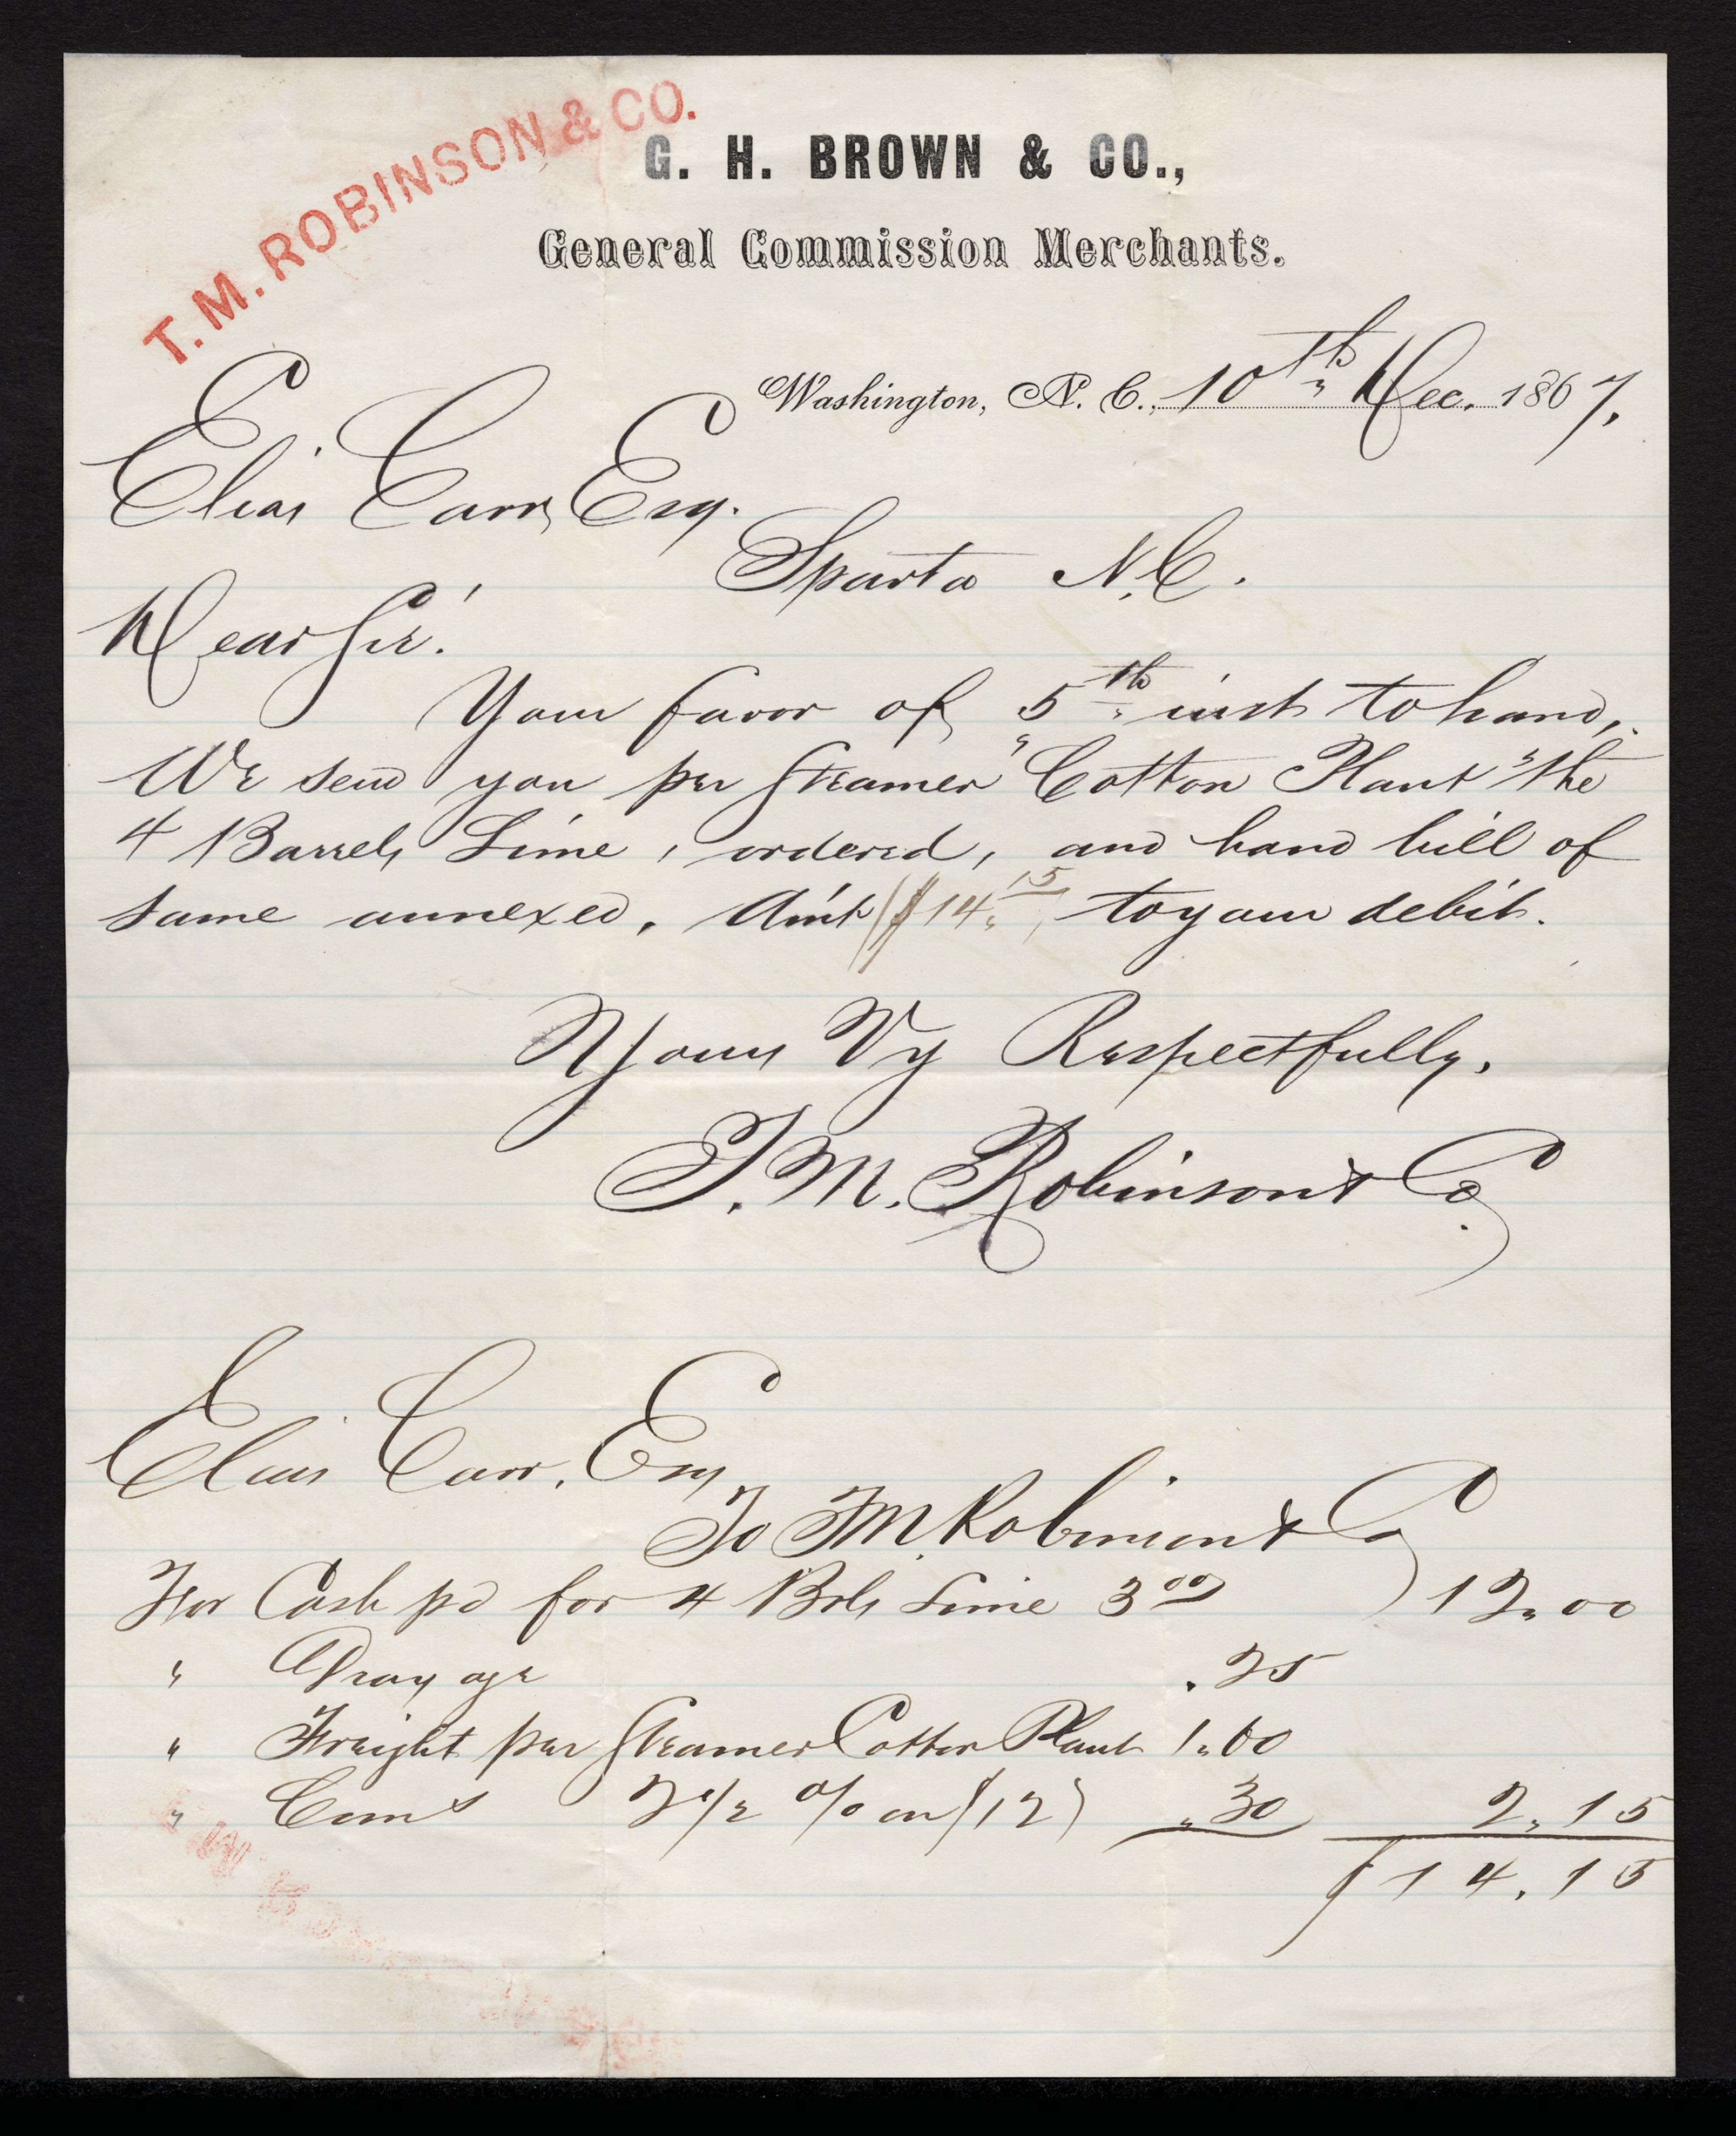 T. M. ROBINSON & CO.
G. H. BROWN & CO.,
General Commission Merchants.
Washington, N. C., 10th Dec. 1867.
Elias Carr, Esq.
Sparta N.C.
Dear Sir!
Your favor of 5th inst to hand,
We send you per Steamer "Cotton Plant" the
4 Barrels Lime, ordered, and hand bill of
same annexed, Am't ($14.15) to your debit.
Yours Vy Respectfully,
T. M. Robinson & Co.
Elias Carr, Esq
To T M. Robinson & Co
For Cash pd for 4 Brls Lime 3.00 12.00
" Drayage .25
" Freight per Steamer Cotton Plant 1.60
" Coms 2 1/2 % on $12) .30 2.15
$14.15